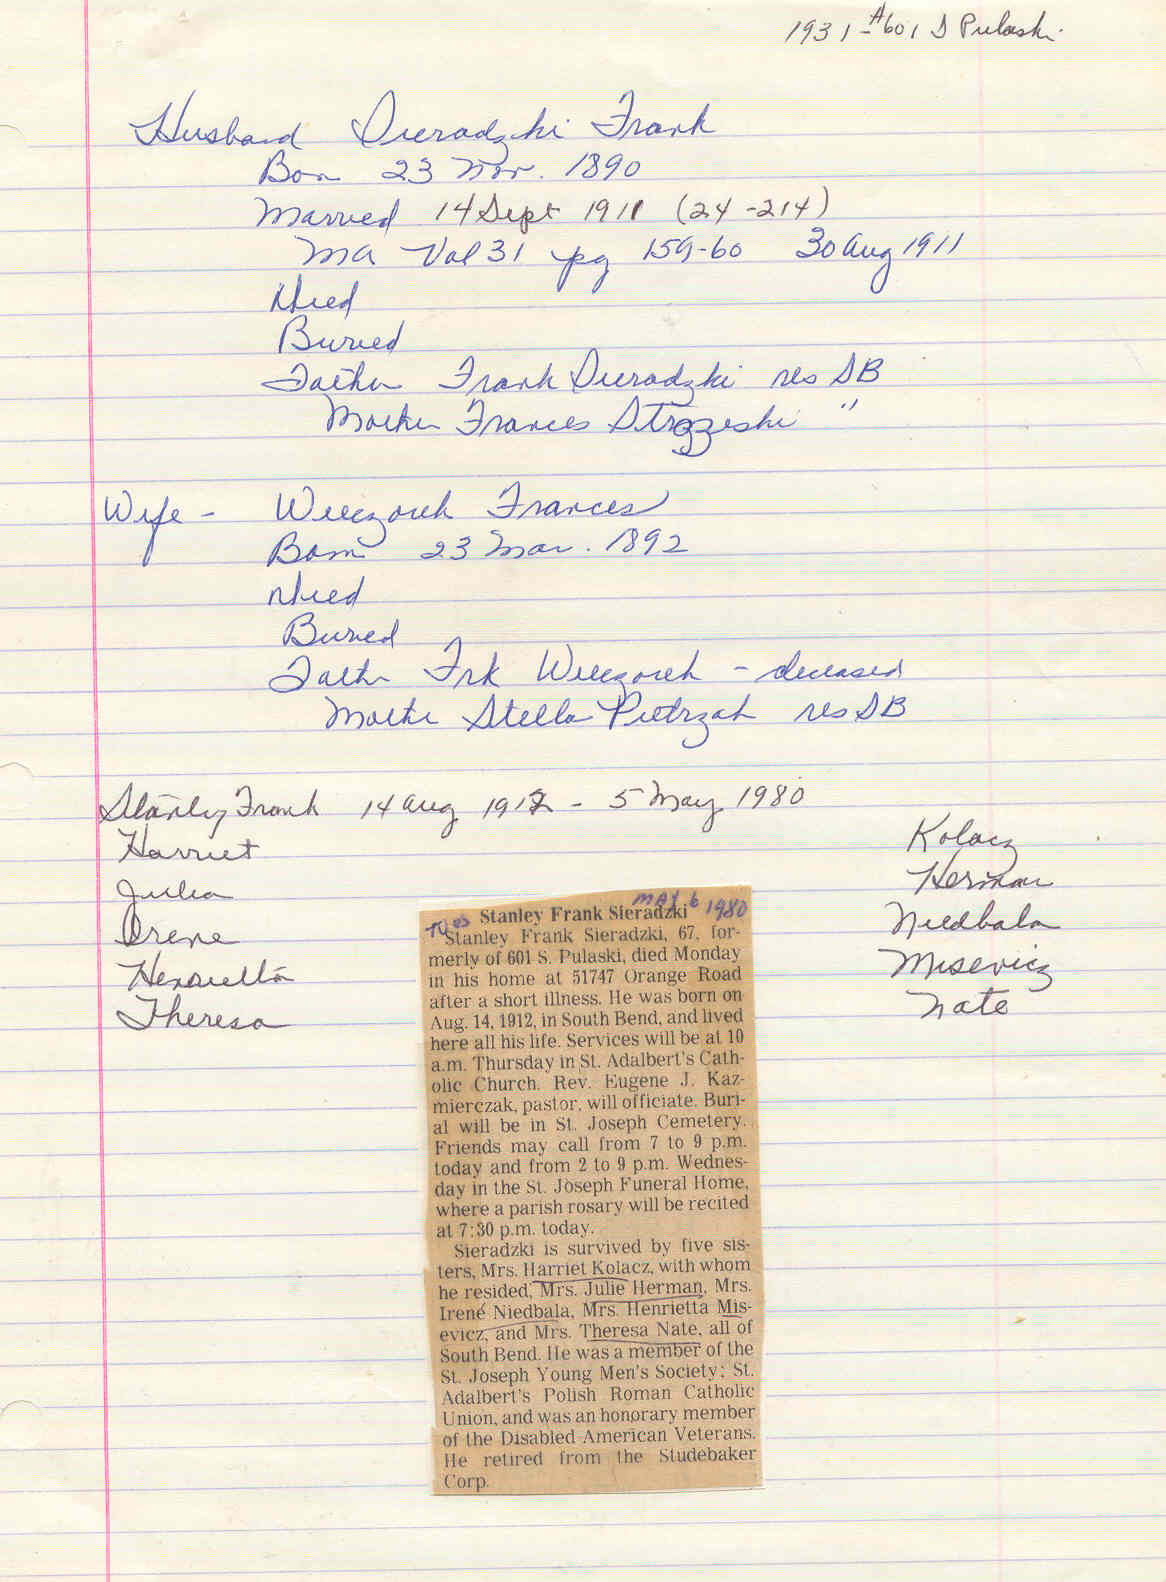 1931 - #601 S Pulaski
Husband Sieradzki Frank
Born 23 Nov. 1890
Married 14 Sept 1911 (24-214)
MA Vol 31 pg 159-60 30 Aug 1911
Died
Buried
Father Frank Sieradzki res SB
Mother Frances Strozeski "
Wife - Wieczorek Frances
Born 23 Mar. 1892
Died
Buried
Father Frk Wieczorek - deceased
Mother Stella Pietrzak res SB
Stanley Frank 14 Aug 1912 - 5 May 1980
Harriet Kolacz
Julia Herman
Irene Niedbala
Henrietta Misevicz
Theresa Nate
Tues May 6 1980
Stanley Frank Sieradzki
Stanley Frank Sieradzki, 67, for-
merly of 601 S. Pulaski, died Monday
in his home at 51747 Orange Road
after a short illness. He was born on
Aug. 14, 1912, in South Bend, and lived
here all his life. Services will be at 10
a.m. Thursday in St. Adalbert's Cath-
olic Church. Rev. Eugene J. Kaz-
mierczak, pastor, will officiate. Buri-
al will be in St. Joseph Cemetery.
Friends may call from 7 to 9 p.m.
today and from 2 to 9 p.m. Wednes-
day in the St. Joseph Funeral Home,
where a parish rosary will be recited
at 7:30 p.m. today.
Sieradzki is survived by five sis-
ters, Mrs. Harriet Kolacz, with whom
he resided, Mrs. Julie Herman, Mrs.
Irene Niedbala, Mrs. Henrietta Mis-
evicz, and Mrs. Theresa Nate, all of
South Bend. He was a member of the
St. Joseph Young Men's Society; St.
Adalbert's Polish Roman Catholic
Union, and was an honorary member
of the Disabled American Veterans.
He retired from the Studebaker
Corp.